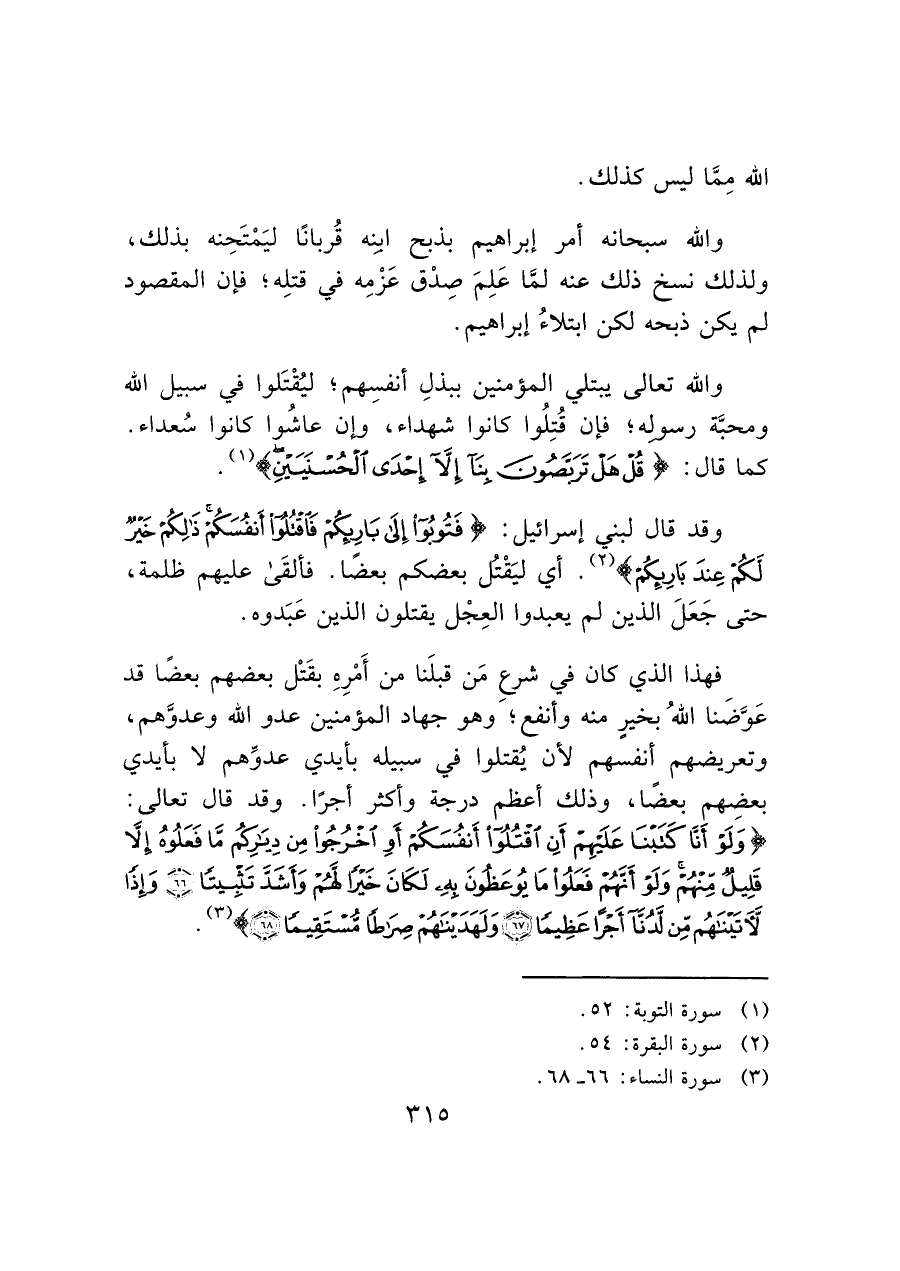 الله مِمَّا ليس كذلك.
والله سبحانه أمر إبراهيم بذبح ابنِه قُربانًا ليَمْتَحِنه بذلك،
ولذلك نسخ ذلك عنه لمَّا عَلِمَ صِدْق عَزْمِه في قتلِه؛ فإن المقصود
لم يكن ذبحه لكن ابتلاءُ إبراهيم.
والله تعالى يبتلي المؤمنين ببذلِ أنفسِهم؛ ليُقْتَلوا في سبيل الله
ومحبَّة رسولِه؛ فإن قُتِلُوا كانوا شهداء، وإن عاشُوا كانوا سُعداء.
كما قال: ﴿قُلْ هَلْ تَرَبَّصُونَ بِنَآ إِلَّآ إِحْدَى ٱلْحُسْنَيَيْنِۖ﴾(١).
وقد قال لبني إسرائيل: ﴿فَتُوبُوٓا۟ إِلَىٰ بَارِئِكُمْ فَٱقْتُلُوٓا۟ أَنفُسَكُمْ ذَٰلِكُمْ خَيْرٌ
لَّكُمْ عِندَ بَارِئِكُمْ﴾(٢). أي ليَقْتُل بعضكم بعضًا. فألقَىٰ عليهم ظلمة،
حتى جَعَلَ الذين لم يعبدوا العِجْل يقتلون الذين عَبَدوه.
فهذا الذي كان في شرعِ مَن قبلَنا من أَمْرِهِ بقَتْل بعضهم بعضًا قد
عَوَّضَنا اللهُ بخيرٍ منه وأنفع؛ وهو جهاد المؤمنين عدو الله وعدوَّهم،
وتعريضهم أنفسهم لأن يُقتلوا في سبيله بأيدي عدوِّهم لا بأيدي
بعضِهم بعضًا، وذلك أعظم درجة وأكثر أجرًا. وقد قال تعالى:
﴿وَلَوْ أَنَّا كَتَبْنَا عَلَيْهِمْ أَنِ ٱقْتُلُوٓا۟ أَنفُسَكُمْ أَوِ ٱخْرُجُوا۟ مِن دِيَٰرِكُم مَّا فَعَلُوهُ إِلَّا
قَلِيلٌ مِّنْهُمْۖ وَلَوْ أَنَّهُمْ فَعَلُوا۟ مَا يُوعَظُونَ بِهِۦ لَكَانَ خَيْرًا لَّهُمْ وَأَشَدَّ تَثْبِيتًا ٦٦ وَإِذًا
لَّءَاتَيْنَٰهُم مِّن لَّدُنَّآ أَجْرًا عَظِيمًا ٦٧ وَلَهَدَيْنَٰهُمْ صِرَٰطًا مُّسْتَقِيمًا ٦٨﴾(٣).
(١) سورة التوبة: ٥٢.
(٢) سورة البقرة: ٥٤.
(٣) سورة النساء: ٦٦ـ ٦٨.
٣١٥